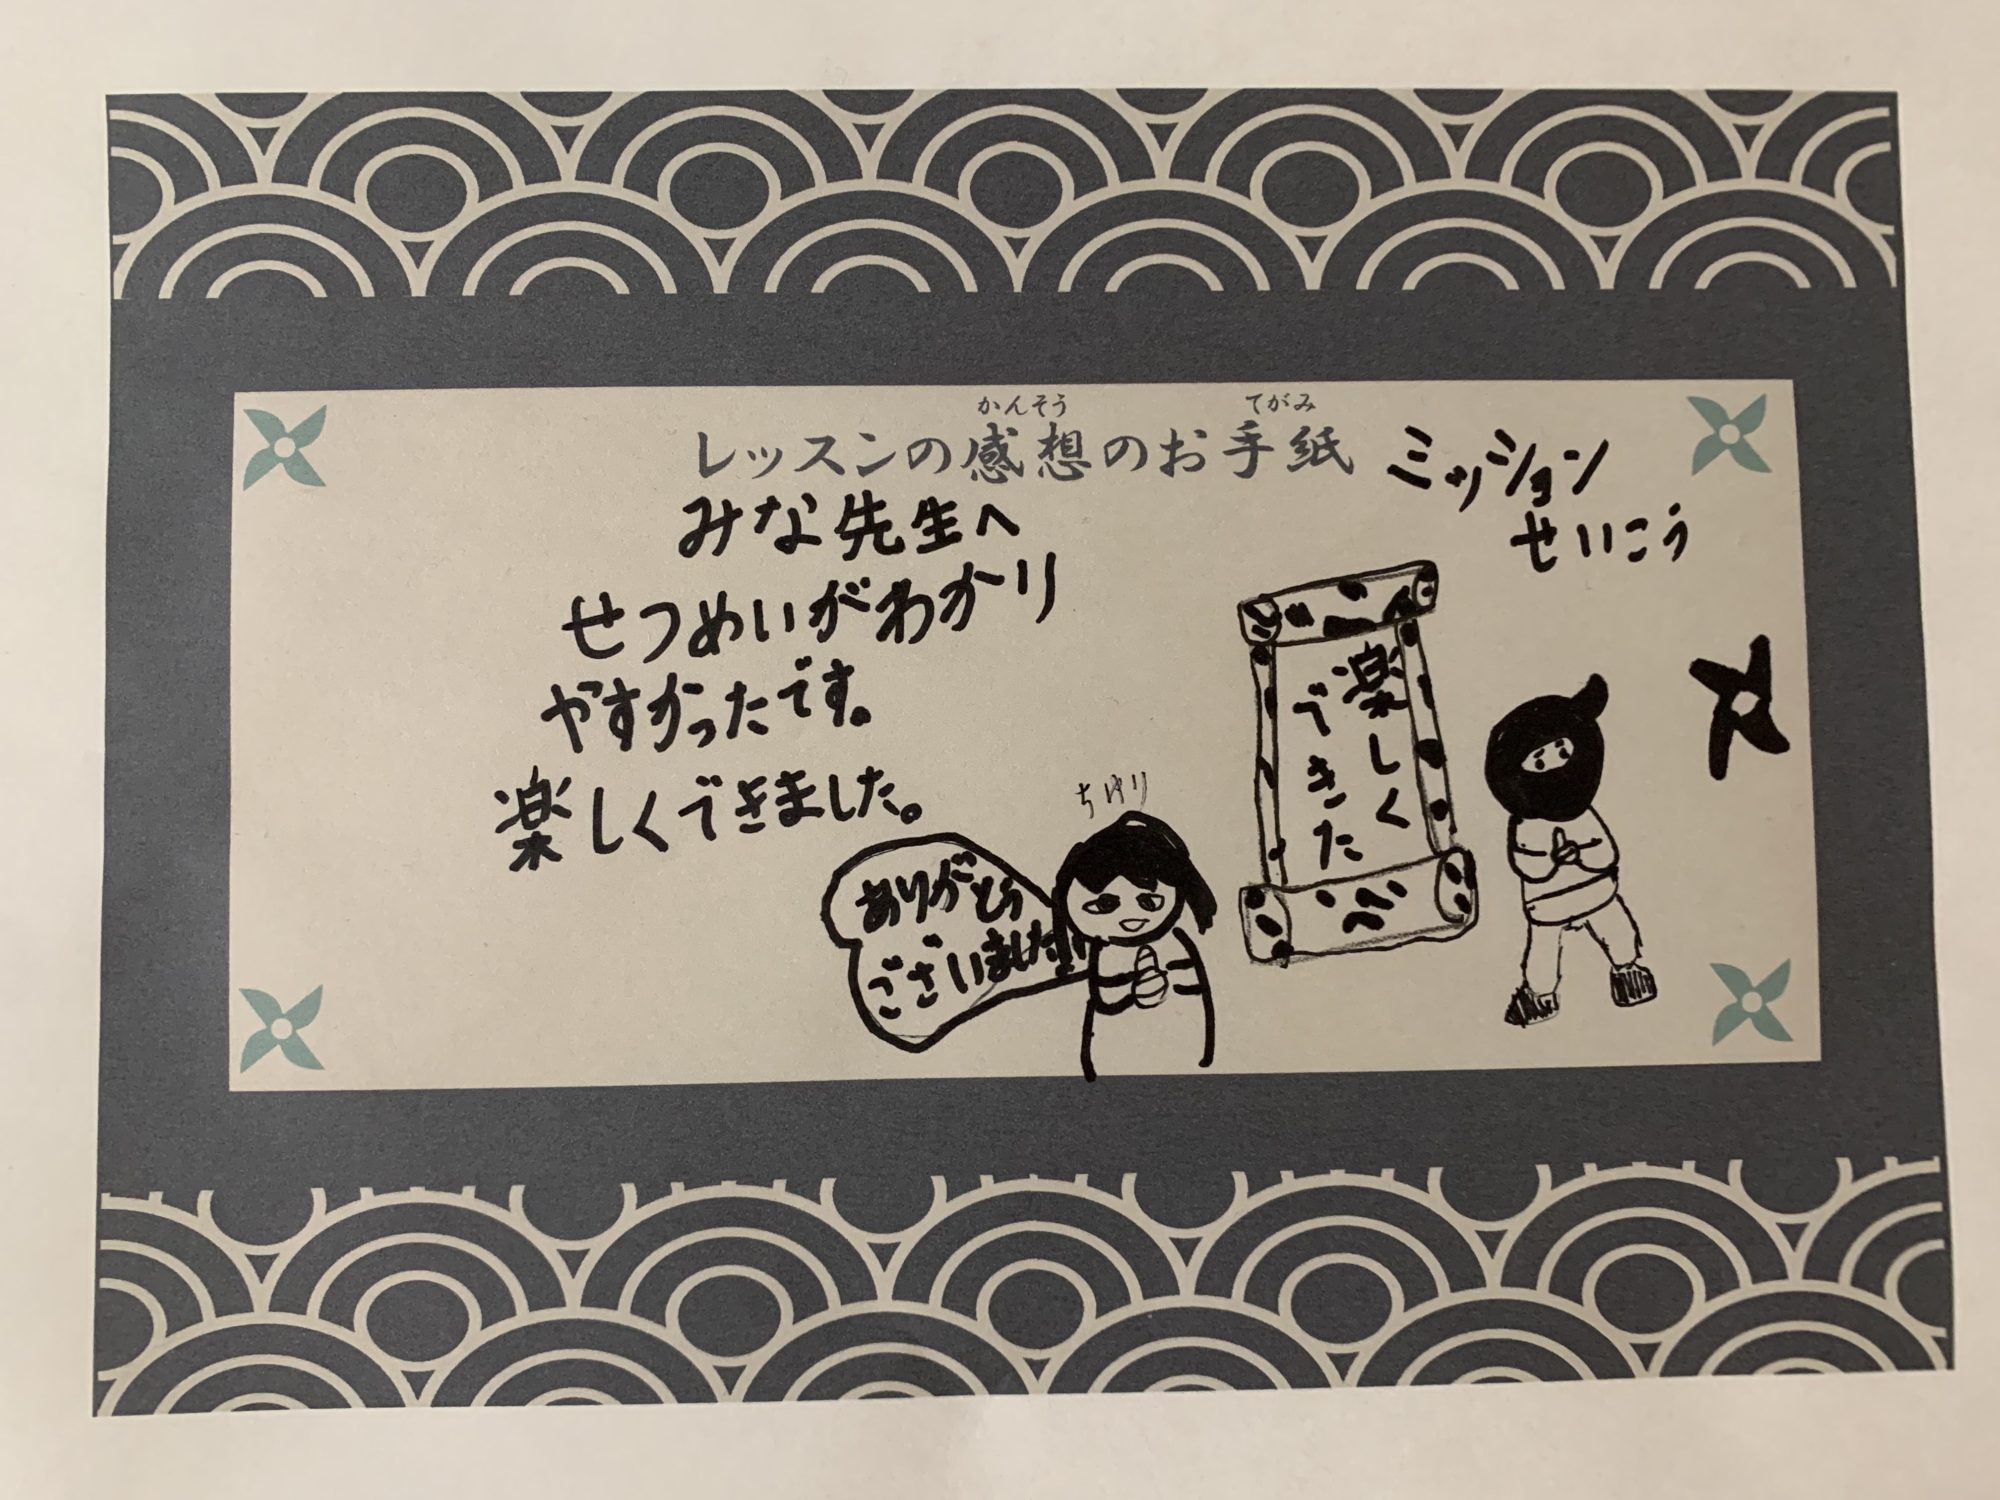 かんそう てがみ
レッスンの感想のお手紙
ミッション
せいこう
みな先生へ
せつめいがわかり
やすかったです。
楽しくできました。
楽しく
できた
ありがとう
ございました